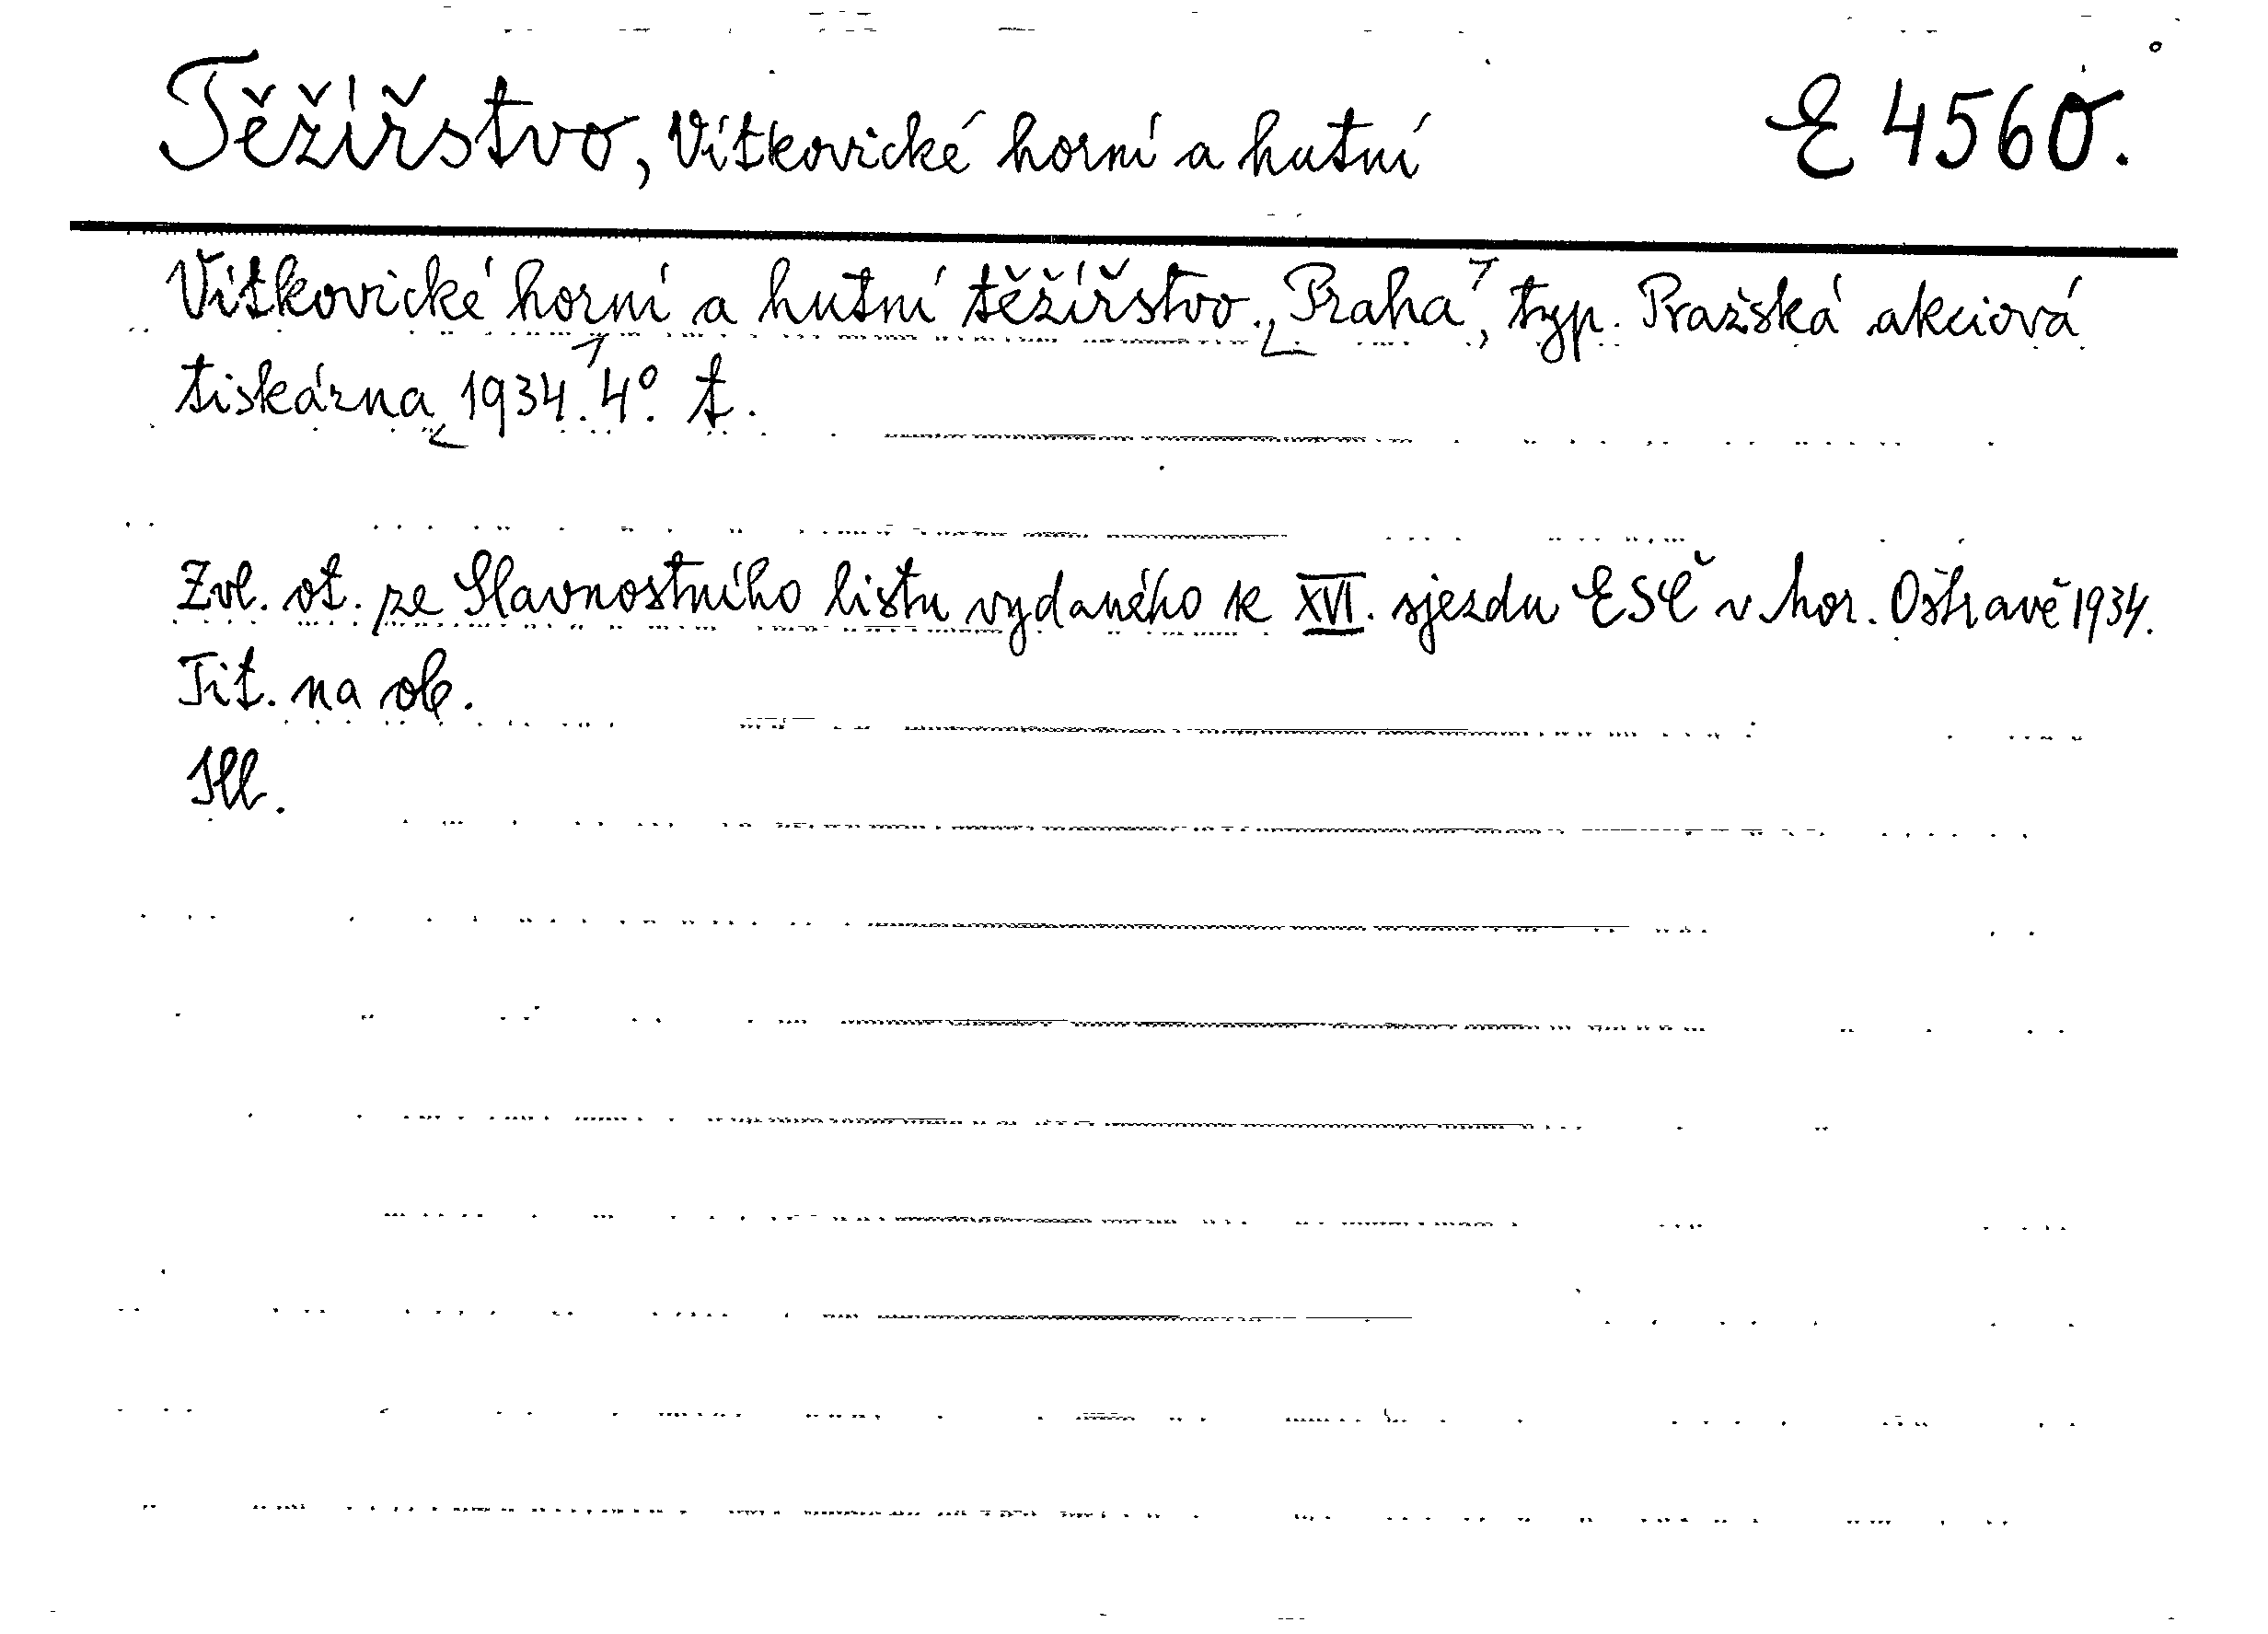 Těžířstvo, Vítkovické horní a hutní E 4560.
Vítkovické horní a hutní těžířstvo. [Praha], typ. Pražská akciová
tiskárna [1934]. 4°. t.
Zvl. ot. ze Slavnostního listu vydaného k XVI. sjezdu ESČ v Mor. Ostravě 1934.
Tit. na ob.
Ill.